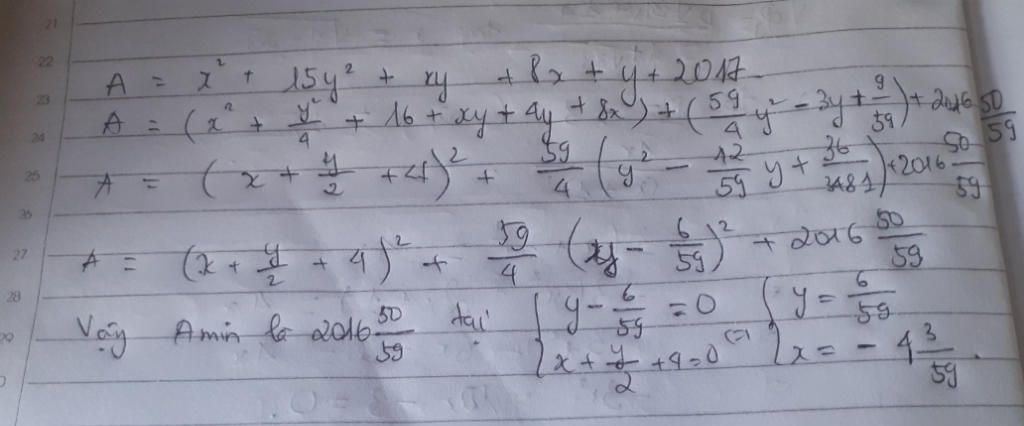 21
22
A = x² + 15y² + xy + 8x + y + 2017
23
A = (x² + y²/4 + 16 + xy + 4y + 8x) + (59/4 y² - 3y + 9/59) + 2016 50/59
24
25
A = (x + y/2 + 4)² + 59/4 (y² - 12/59 y + 36/3481) + 2016 50/59
26
27
A = (x + y/2 + 4)² + 59/4 (y - 6/59)² + 2016 50/59
28
Vậy Amin là 2016 50/59 tại { y - 6/59 = 0 { y = 6/59
{ x + y/2 + 4 = 0 <=> { x = - 4 3/59.